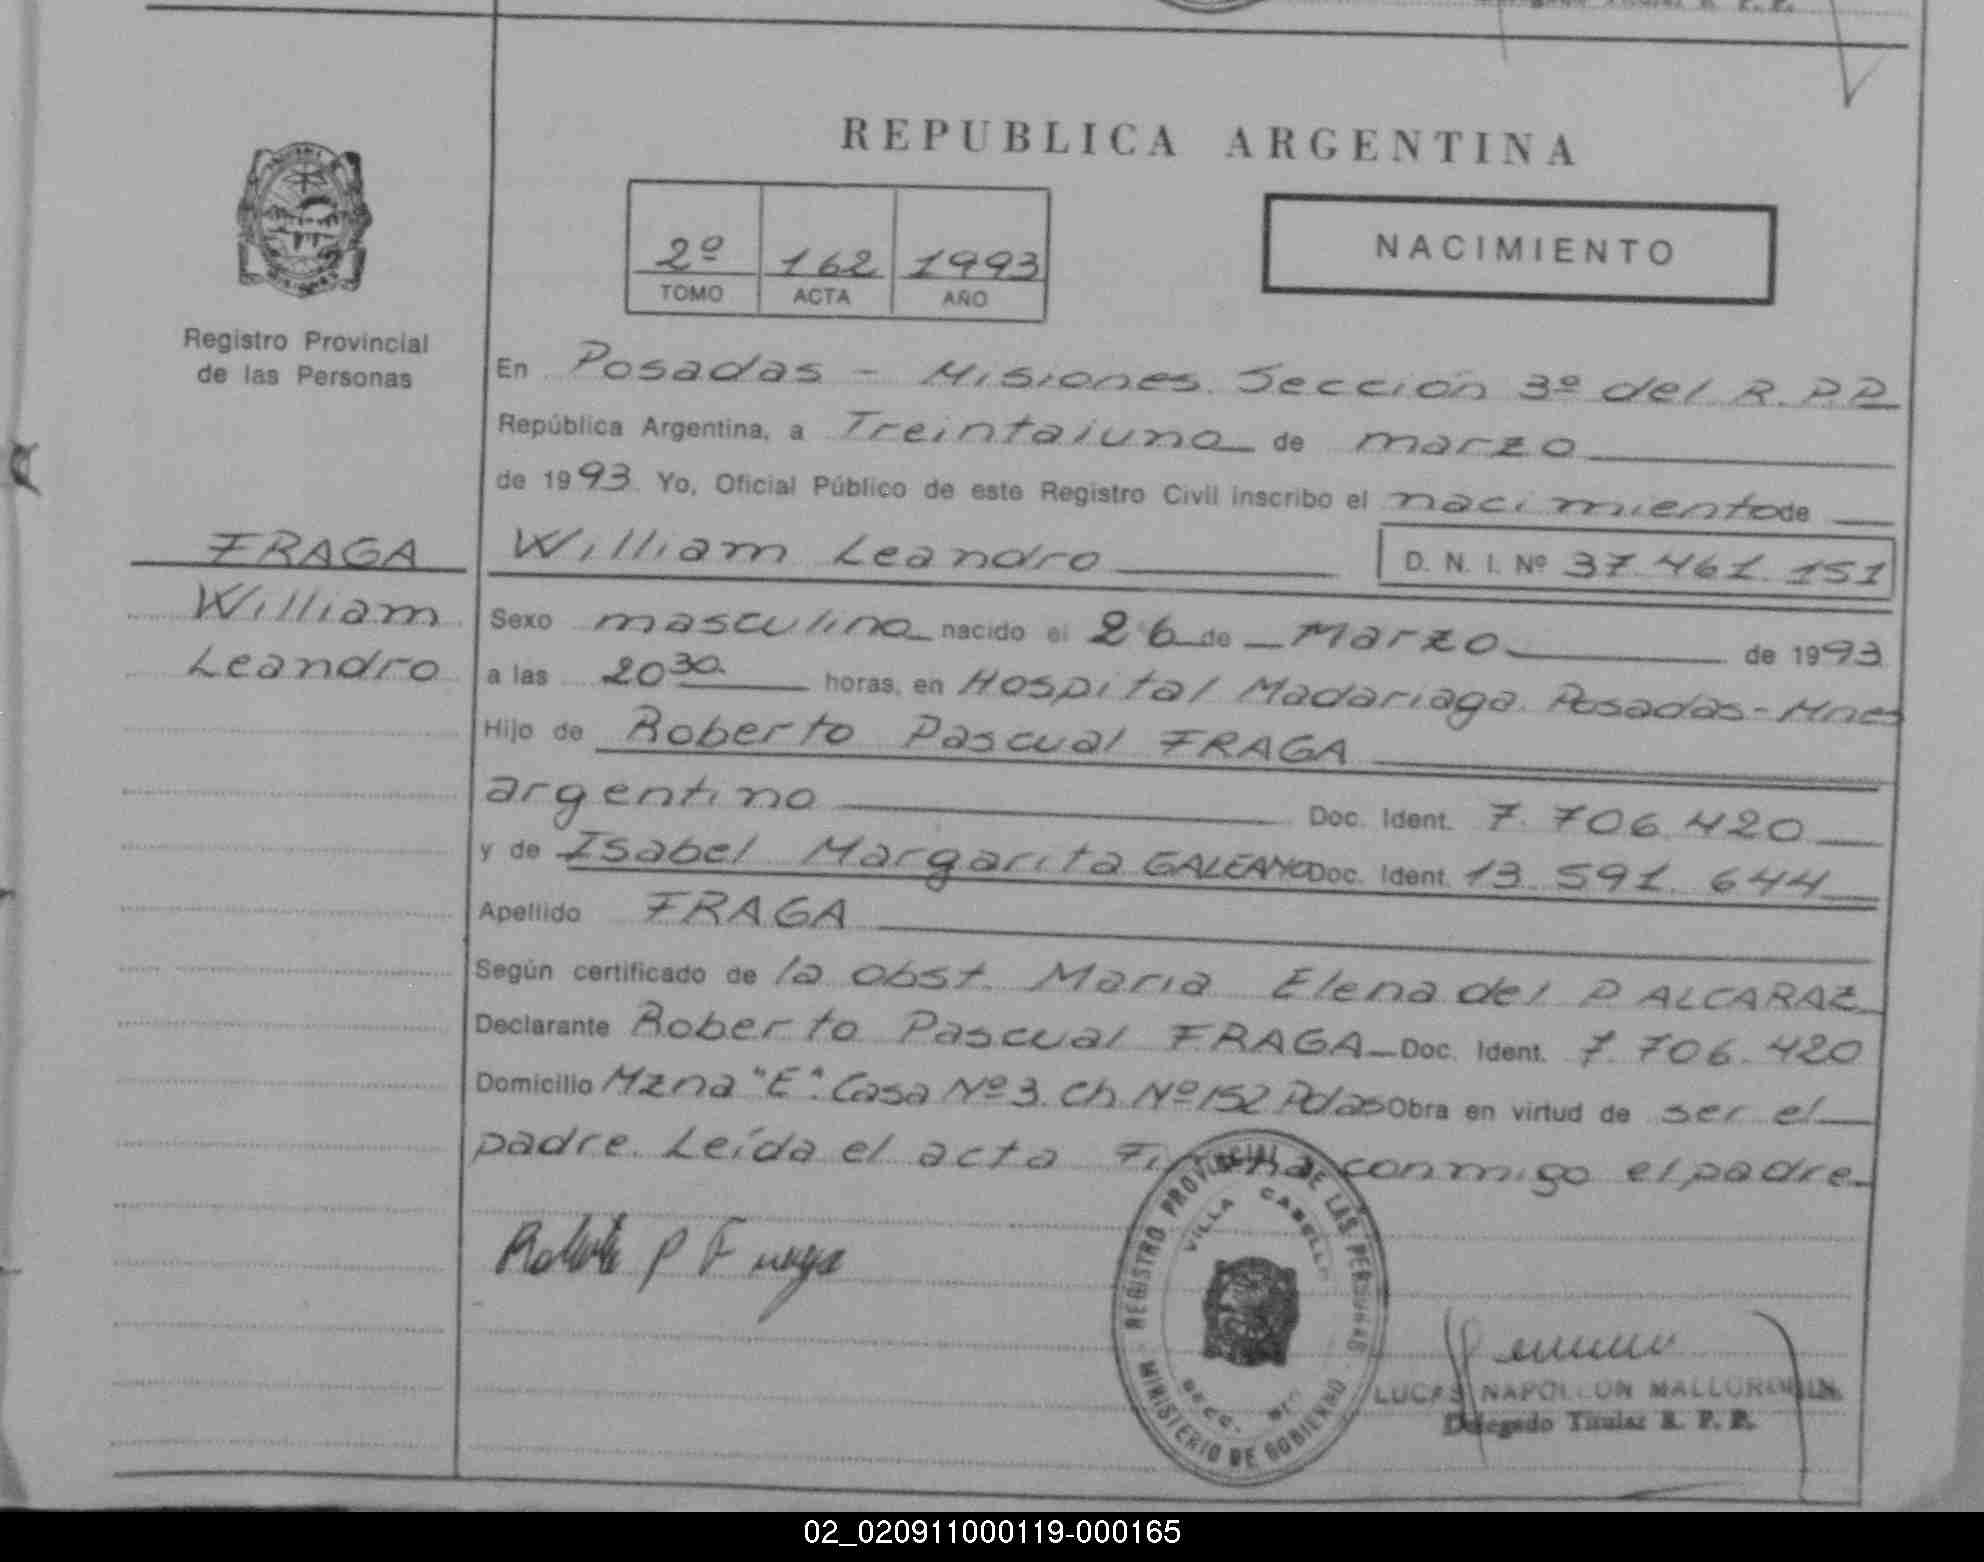 REPUBLICA ARGENTINA
2º 162 1993
TOMO ACTA AÑO
NACIMIENTO
Registro Provincial
de las Personas
En Posadas - Misiones. Sección 3º del R.P.P
República Argentina, a Treintaiuno de marzo
de 1993. Yo, Oficial Público de este Registro Civil inscribo el nacimiento de
FRAGA
William
Leandro
William Leandro D. N. I. Nº 37.461.151
Sexo masculino nacido el 26 de Marzo de 1993
a las 20 30. horas, en Hospital Madariaga. Posadas - Mnes
Hijo de Roberto Pascual FRAGA
argentino Doc. Ident. 7.706.420
y de Isabel Margarita GALEANO Doc. Ident. 13.591.644
Apellido FRAGA
Según certificado de la obst. Maria Elena del P. ALCARAZ
Declarante Roberto Pascual FRAGA Doc. Ident. 7.706.420
Domicilio Mzna "E". Casa Nº 3. Ch Nº 152 Pdas Obra en virtud de ser el
padre. Leída el acta Firma conmigo el padre.
Roberto P Fraga
REGISTRO PROVINCIAL DE LAS PERSONAS
VILLA CABELLO
MINISTERIO DE GOBIERNO
LUCAS NAPOLEON
Delegado Titular R. P. P.
02_020911000119-000165